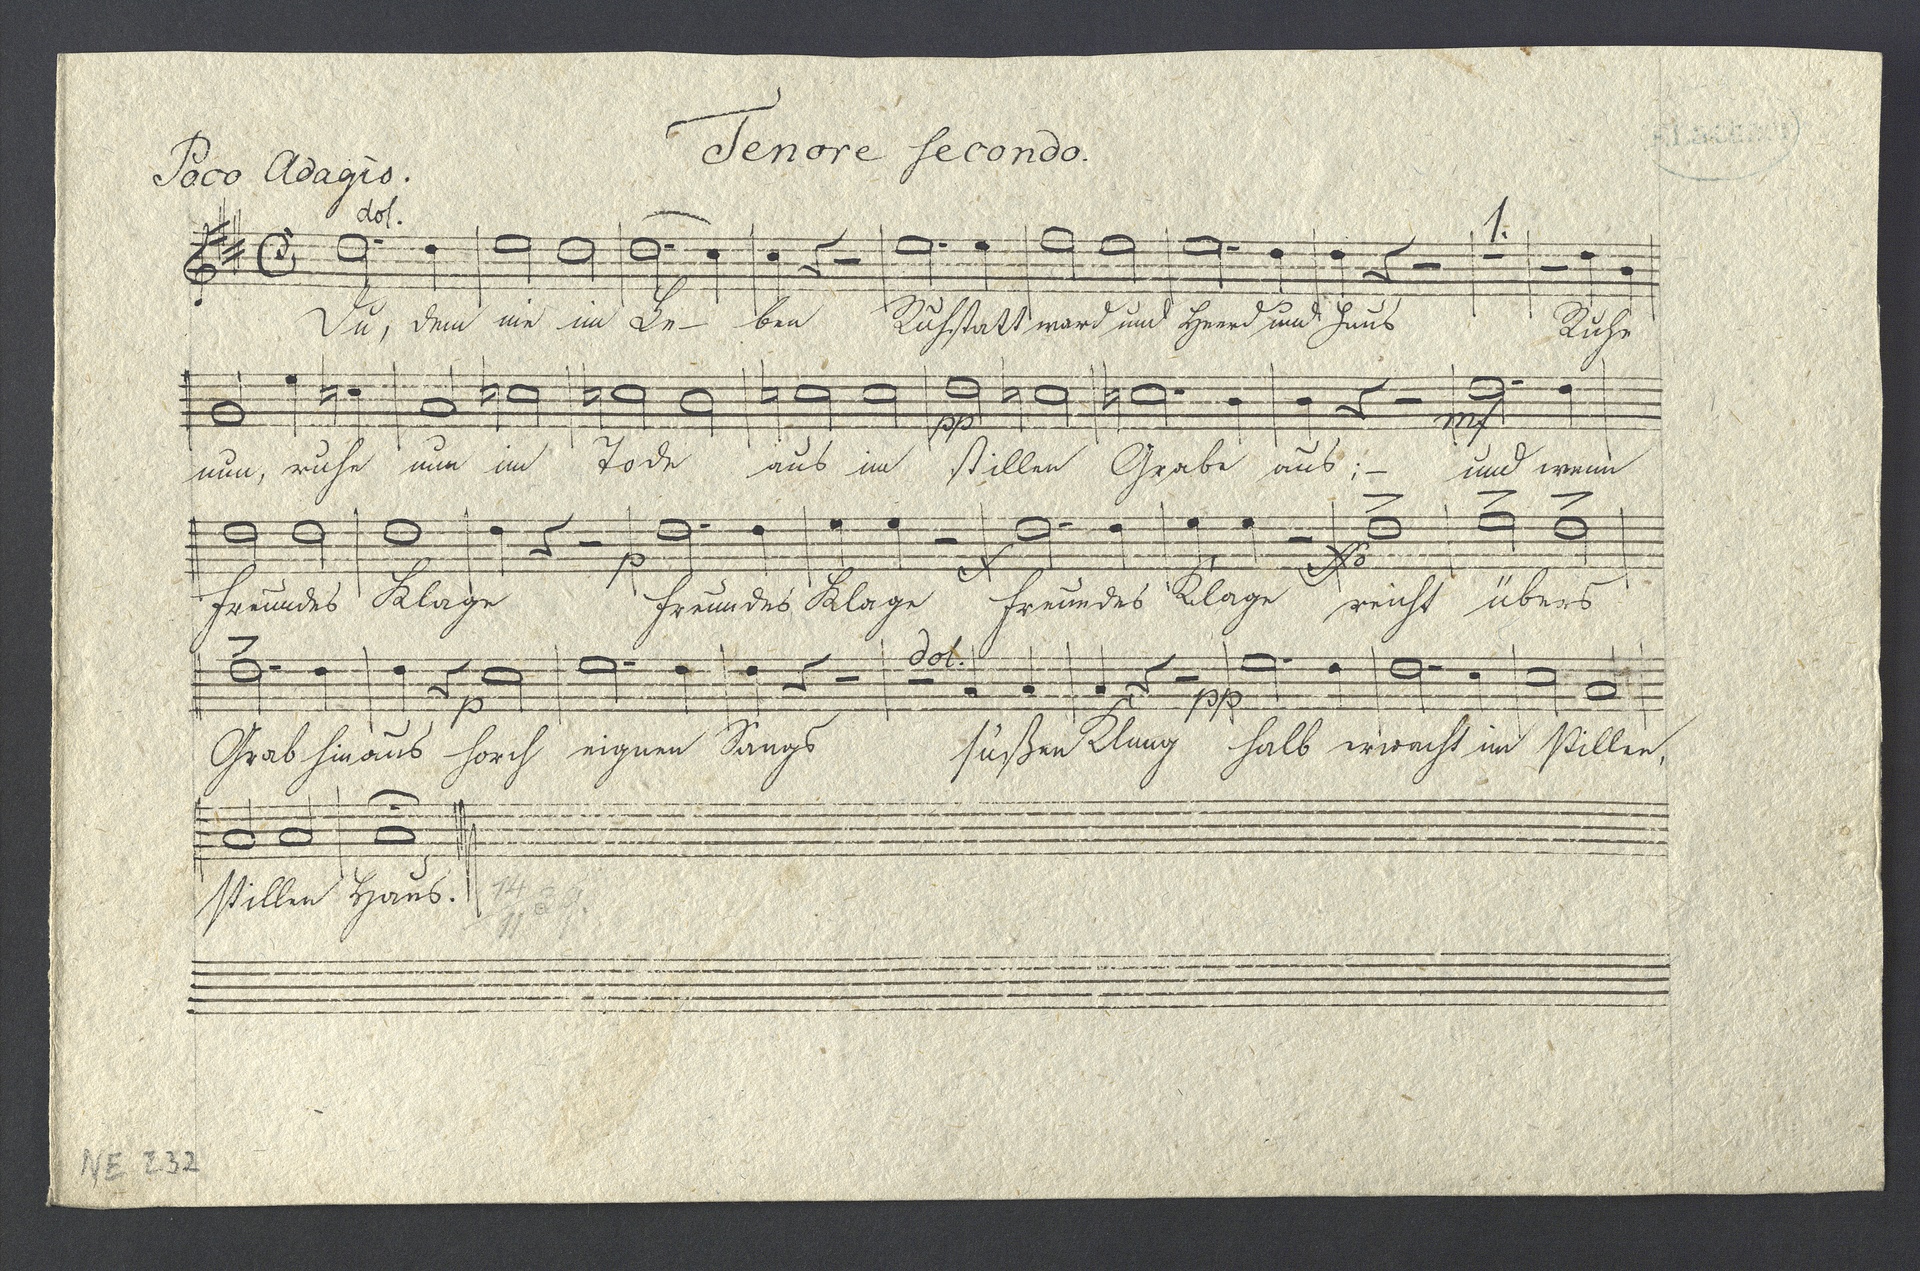 Tenore secondo.
Poco Adagio.
dol.
1.
Du, dem nie im Le- ben Ruhstatt ward und Heerd und Haus Ruhe
pp mf
nun, ruhe nun im Tode aus im stillen Grabe aus;- und wenn
p f ffo
Freundes Klage Freundes Klage Freundes Klage reicht übers
dol.
p pp
Grab hinaus horch eignen Sangs süßen Klang halb erwacht im Stillen,
stillen Haus.
NE 232